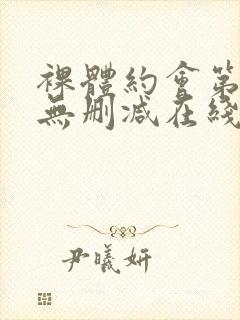 裸體約會第
無刪减在綫
尹曦妍